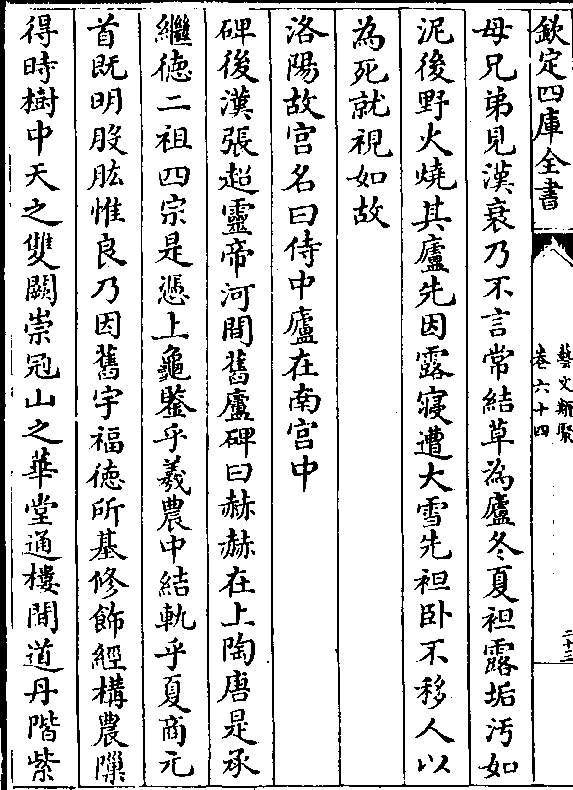 欽定四庫全書
藝文類聚
卷六十四
二十三
母兄弟見漢衰乃不言常結草為廬冬夏袒露垢汚如
泥後野火燒其廬先因露寢遭大雪先袒卧不移人以
為死就視如故
洛陽故宫名曰侍中廬在南宫中
碑後漢張超靈帝河間舊廬碑曰赫赫在上陶唐是承
繼徳二祖四宗是憑上龜鑒乎羲農中結軌乎夏商元
首既明股肱惟良乃因舊宇福徳所基修飾經構農隟
得時樹中天之雙闕崇冠山之華堂通樓閒道丹階紫